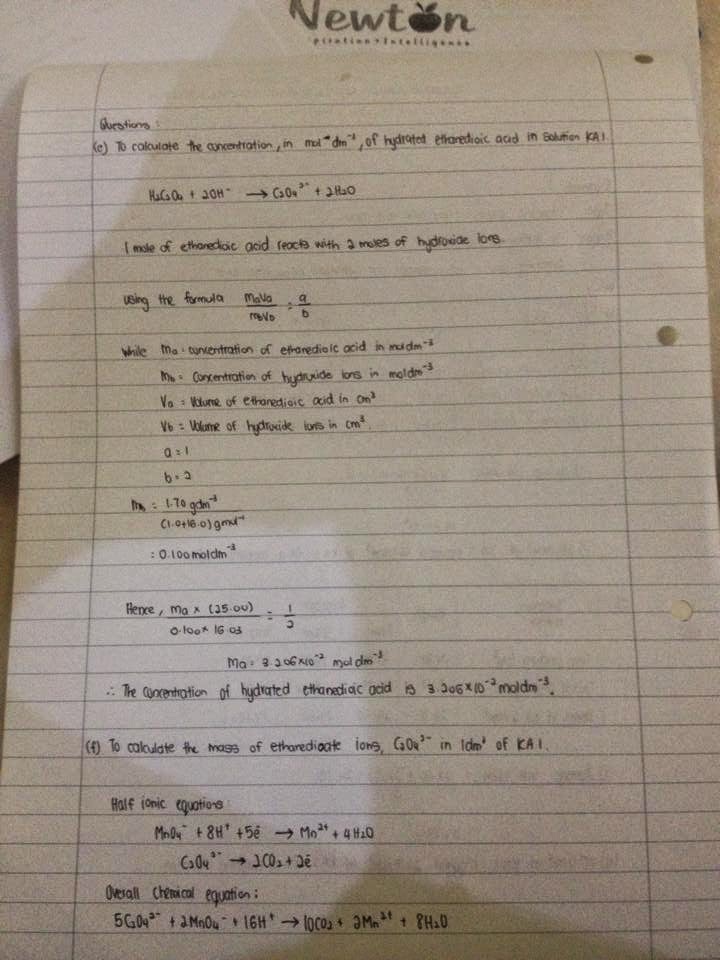 Newton
piration > Intelligence
Questions :
(e) To calculate the concentration, in mol⁻dm⁻³, of hydrated ethanedioic acid in solution KA1.
H₂C₂O₄ + 2OH⁻ → C₂O₄²⁻ + 2H₂O
1 mole of ethanedioic acid reacts with 2 moles of hydroxide ions.
using the formula MaVa/MbVb = a/b
While Ma = concentration of ethanedioic acid in moldm⁻³
Mb = concentration of hydroxide ions in moldm⁻³
Va = Volume of ethanedioic acid in cm³
Vb = Volume of hydroxide ions in cm³.
a = 1
b = 2
Mb = 1.70 gdm⁻³ / (1.0+16.0) gmol⁻¹
= 0.100 moldm⁻³
Hence, Ma × (25.00) / 0.100 × 16.03 = 1/2
Ma = 3.206×10⁻² moldm⁻³
∴ The concentration of hydrated ethanedioic acid is 3.206×10⁻² moldm⁻³.
(f) To calculate the mass of ethanedioate ions, C₂O₄²⁻ in 1dm³ of KA1.
Half ionic equations
MnO₄⁻ + 8H⁺ + 5e̅ → Mn²⁺ + 4H₂O
C₂O₄²⁻ → 2CO₂ + 2e̅
Overall Chemical equation :
5C₂O₄²⁻ + 2MnO₄⁻ + 16H⁺ → 10CO₂ + 2Mn²⁺ + 8H₂O